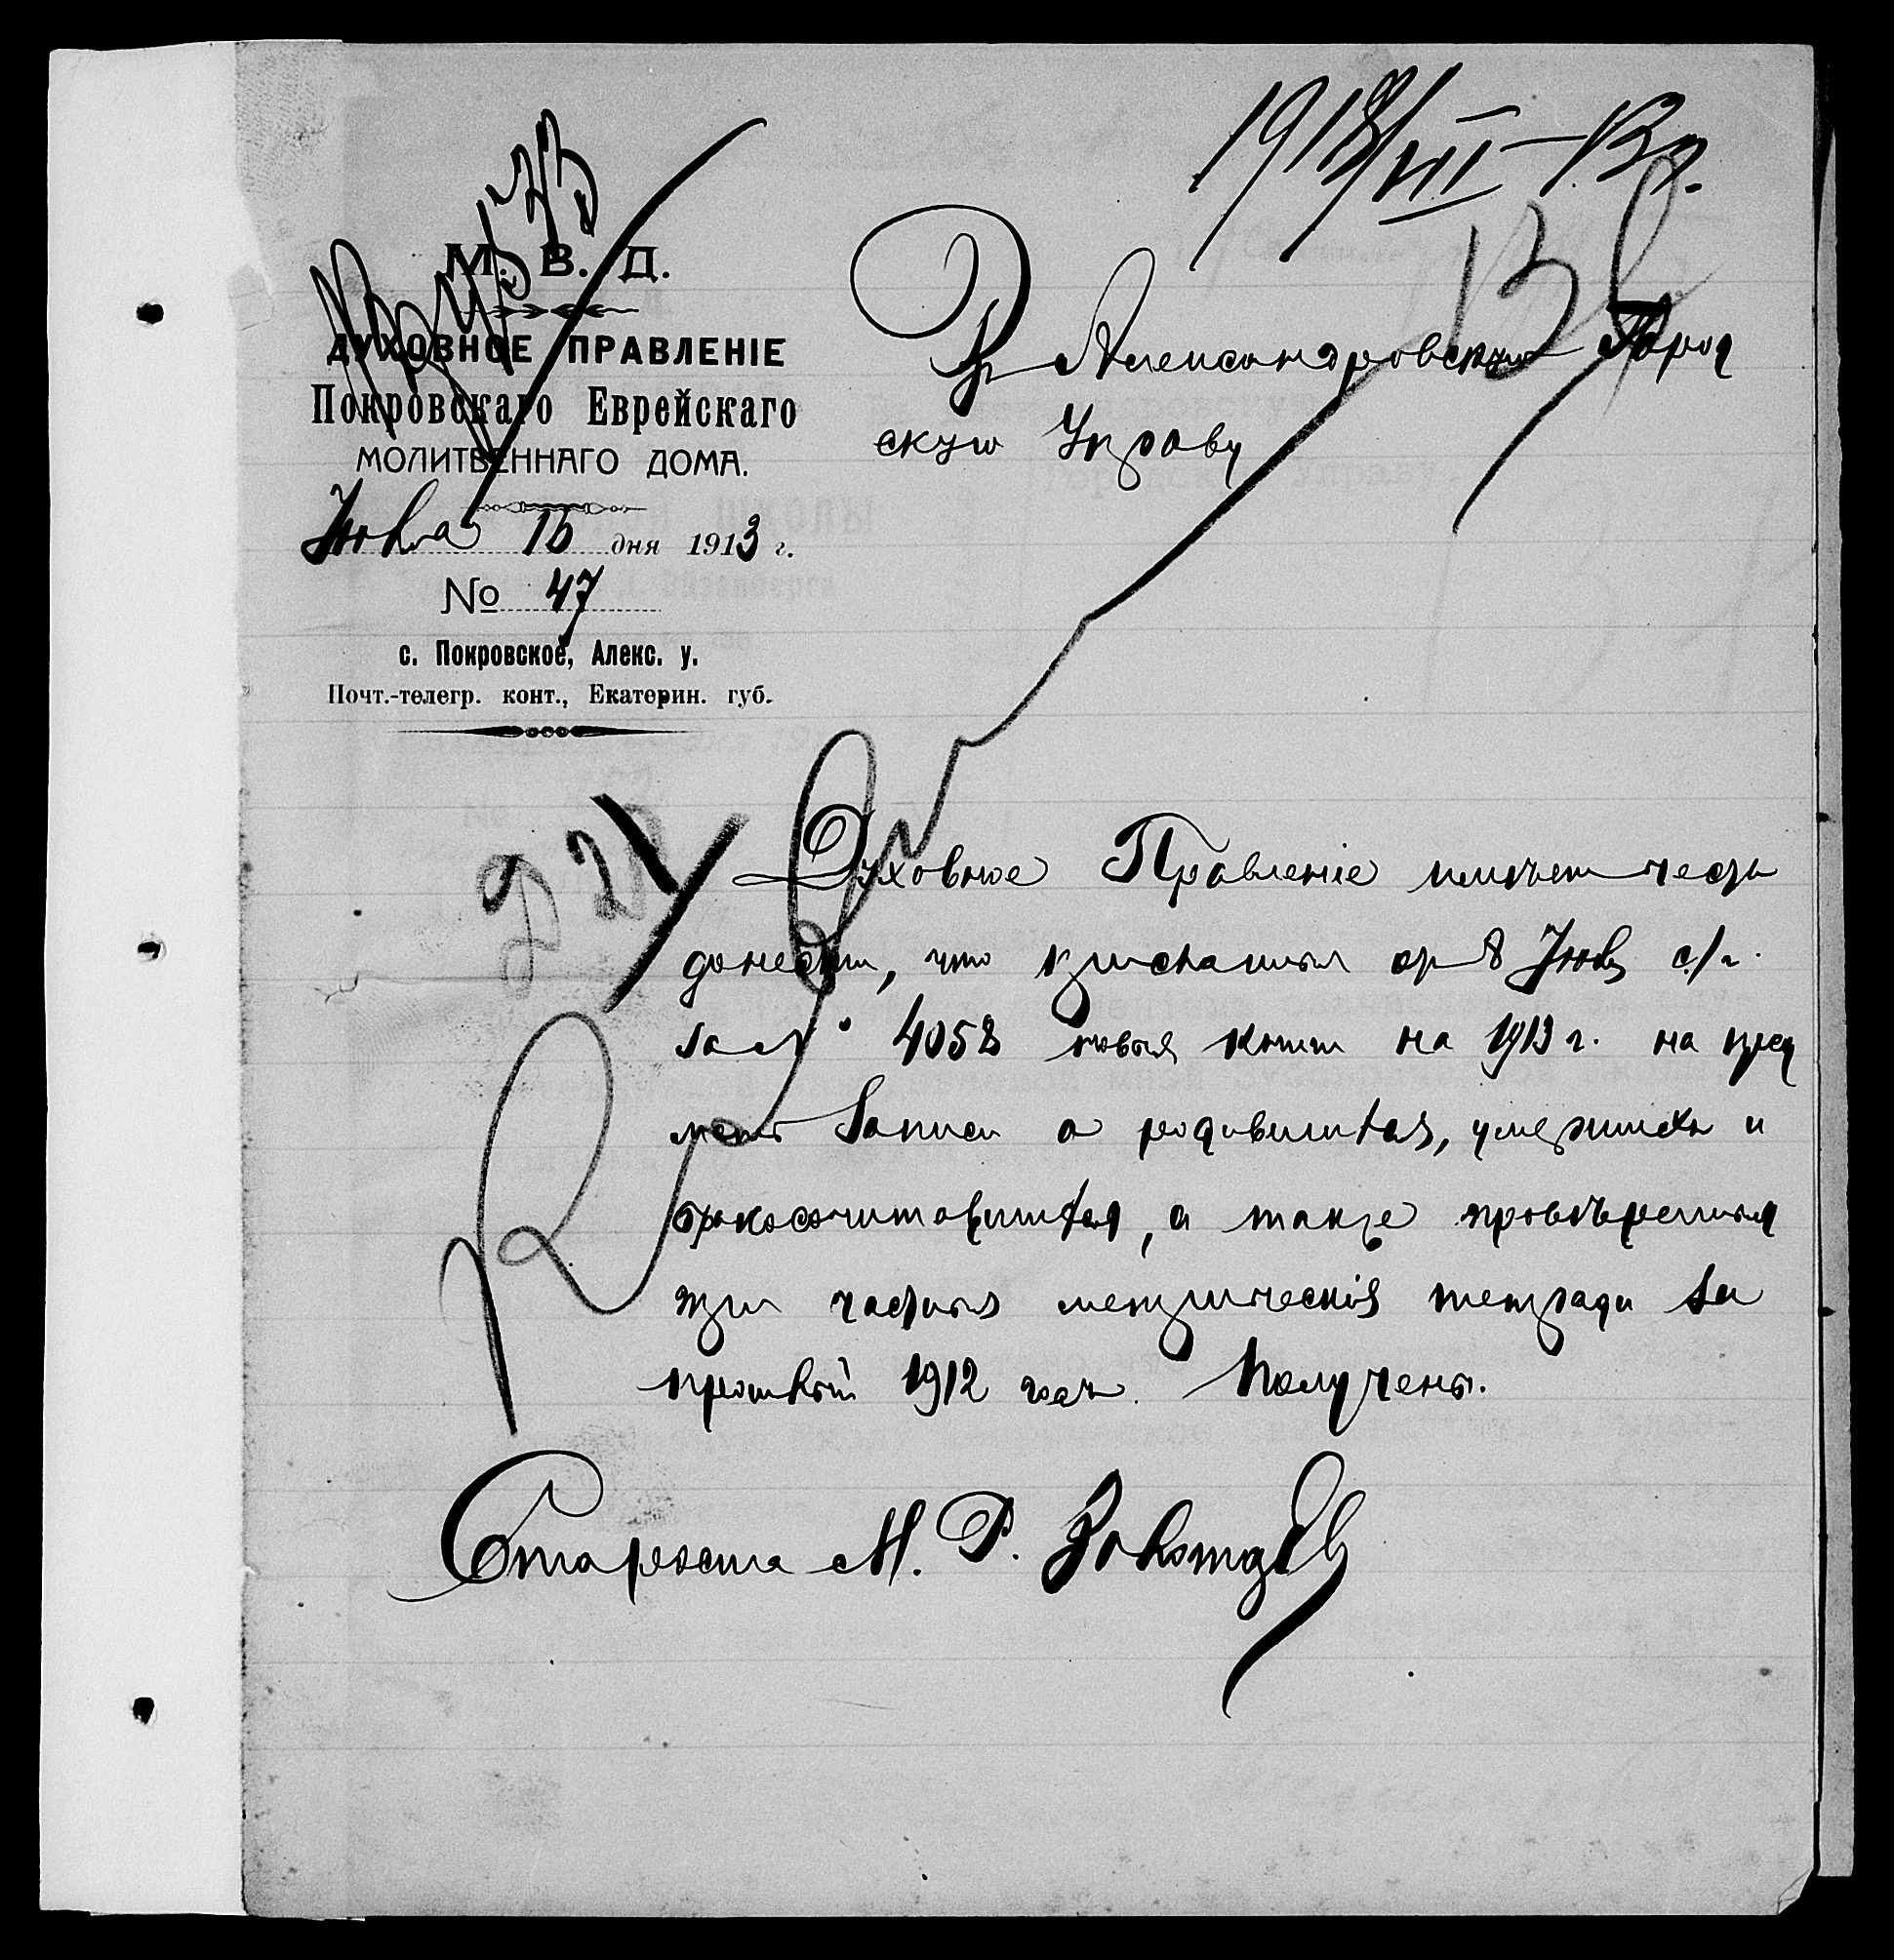 М. В. Д.
ДУХОВНОЕ ПРАВЛЕНІЕ
Покровскаго Еврейскаго
МОЛИТВЕННАГО ДОМА.
Июля 16 дня 1913 г.
№ 47
с. Покровское, Алекс. у.
Почт.-телегр. конт., Екатерин. губ.
13 г.
Въ Александровскую Город
скую Управу
Духовное Правленіе имѣетъ честь
донести, что присланныя от 8 Июля с/г.
за № 4058 новыя книги на 1913 г. на пред
метъ записи о родившихся, умершихъ и
бракосочитавшихся, а также провѣренныя
три частныя метрическія тетради за
прошлый 1912 годъ. Получены.
Староста М. Р.